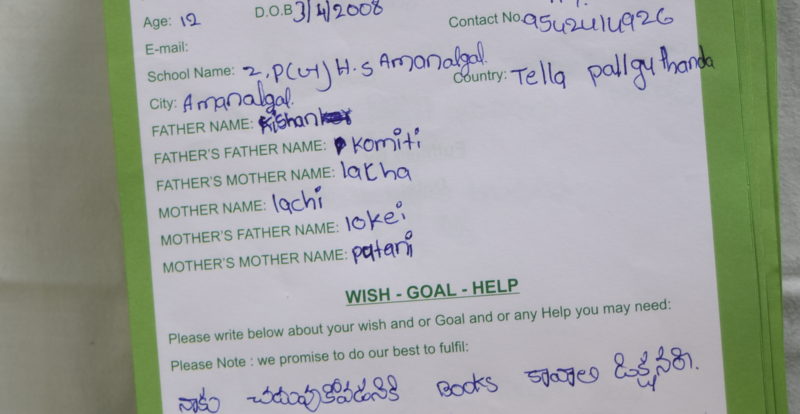 Age: 12 D.O.B 3/4/2008 Contact No. 9542414926
E-mail:
School Name: Z.P(UT) H.S Amanalgal. Country: Tella pallguthanda
City: Amanalgal.
FATHER NAME: Kishan
FATHER'S FATHER NAME: komiti
FATHER'S MOTHER NAME: latha
MOTHER NAME: lachi
MOTHER'S FATHER NAME: lokei
MOTHER'S MOTHER NAME: patani
WISH - GOAL - HELP
Please write below about your wish and or Goal and or any Help you may need:
Please Note : we promise to do our best to fulfil:
నాకు చదువుకోవడనికి Books కావాలి డిక్షనరి.